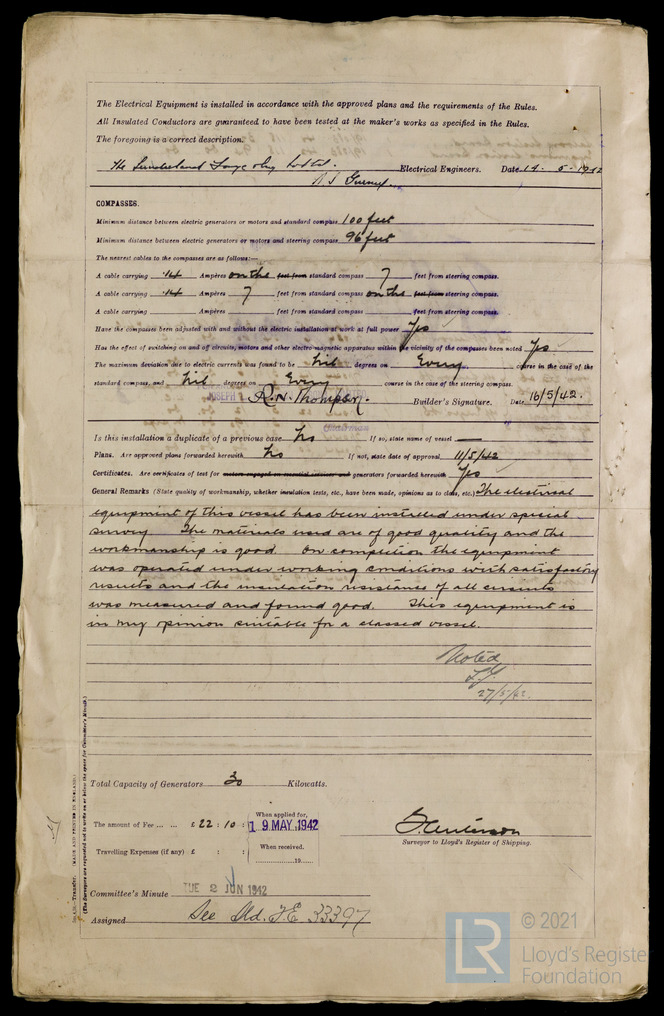 The Electrical Equipment is installed in accordance with the approved plans and the requirements of the Rules.
All Insulated Conductors are guaranteed to have been tested at the maker's works as specified in the Rules.
The foregoing is a correct description.
The Sunderland Forge & Eng Co Ltd. Electrical Engineers. Date 14-5-1942
COMPASSES.
Minimum distance between electric generators or motors and standard compass 100 feet
Minimum distance between electric generators or motors and steering compass 96 feet
The nearest cables to the compasses are as follows:—
A cable carrying .14 Ampères on the feet from standard compass 7 feet from steering compass.
A cable carrying .14 Ampères 7 feet from standard compass on the feet from steering compass.
A cable carrying Ampères feet from standard compass feet from steering compass.
Have the compasses been adjusted with and without the electric installation at work at full power Yes
Has the effect of switching on and off circuits, motors and other electro magnetic apparatus within the vicinity of the compasses been noted Yes
The maximum deviation due to electric currents was found to be Nil degrees on Every course in the case of the
standard compass, and Nil degrees on Every course in the case of the steering compass.
JOSEPH R.N. Thompson. Builder's Signature. Date 16/5/42.
Is this installation a duplicate of a previous case No If so, state name of vessel —
Plans. Are approved plans forwarded herewith No If not, state date of approval 11/5/42
Certificates. Are certificates of test for motors engaged on essential services and generators forwarded herewith Yes
General Remarks (State quality of workmanship, whether insulation tests, etc., have been made, opinions as to class, etc.) The electrical
equipment of this vessel has been installed under special
survey. The materials used are of good quality and the
workmanship is good. On completion the equipment
was operated under working conditions with satisfactory
results and the insulation resistance of all circuits
was measured and found good. This equipment is
in my opinion suitable for a classed vessel.
Noted
27/5/42.
Total Capacity of Generators 30 Kilowatts.
The amount of Fee ... ... £ 22 : 10 : When applied for, 19 MAY 1942
Travelling Expenses (if any) £ : : When received. 19
Surveyor to Lloyd's Register of Shipping.
Committee's Minute TUE 2 JUN 1942
Assigned See Sld. F.E. 33397
Transfer. (MADE AND PRINTED IN ENGLAND.)
(The Surveyors are requested not to write on or below the space for Committee's Minute.)
LR © 2021
Lloyd's Register
Foundation